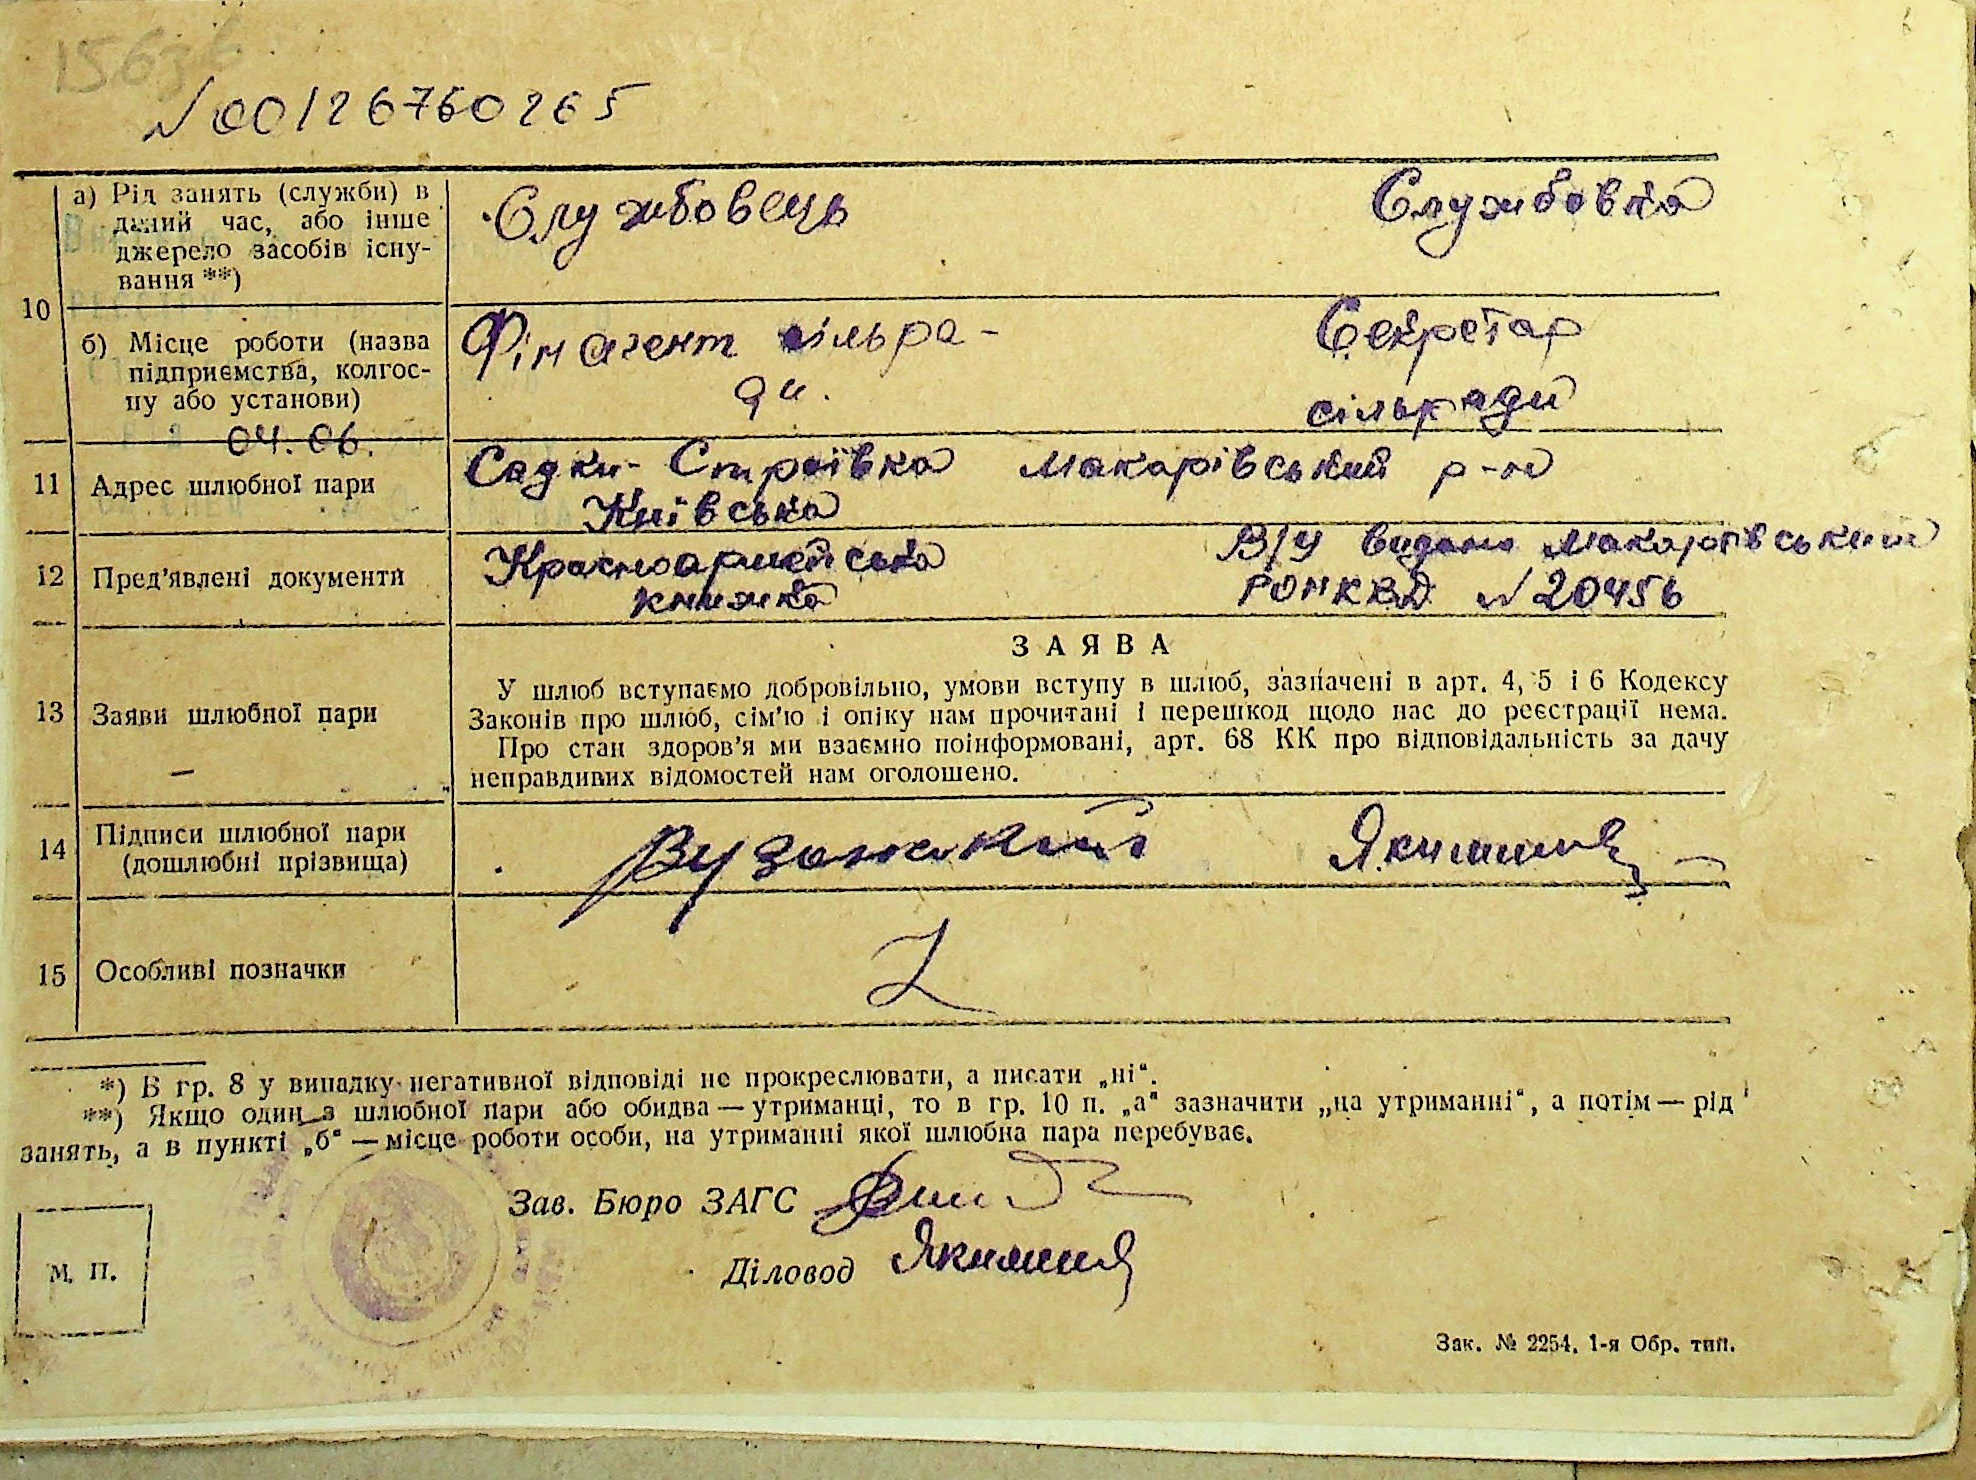 № 00126760265
а) Рід занять (служби) в даний час, або інше джерело засобів існування **)
Службовець Службовка
10
б) Місце роботи (назва підприємства, колгоспу або установи)
Фінагент сільра-
ди.
Секретар
сільради
04.06.
11 Адрес шлюбної пари
Садки-Строївка Макарівський р-н
Київська
12 Пред'явлені документи
Красноармейська
книжка
В/У видано Макарівський
РОНКВД № 20456
13 Заяви шлюбної пари
ЗАЯВА
У шлюб вступаємо добровільно, умови вступу в шлюб, зазначені в арт. 4, 5 і 6 Кодексу
Законів про шлюб, сім'ю і опіку нам прочитані і перешкод щодо нас до реєстрації нема.
Про стан здоров'я ми взаємно поінформовані, арт. 68 КК про відповідальність за дачу
неправдивих відомостей нам оголошено.
14 Підписи шлюбної пари
(дошлюбні прізвища)
15 Особливі позначки
*) В гр. 8 у випадку негативної відповіді не прокреслювати, а писати „ні“.
**) Якщо один з шлюбної пари або обидва — утриманці, то в гр. 10 п. „а“ зазначити „на утриманні“, а потім — рід
занять, а в пункті „б“ — місце роботи особи, на утриманні якої шлюбна пара перебуває.
Зав. Бюро ЗАГС
Діловод
М. П.
Зак. № 2254. 1-я Обр. тип.